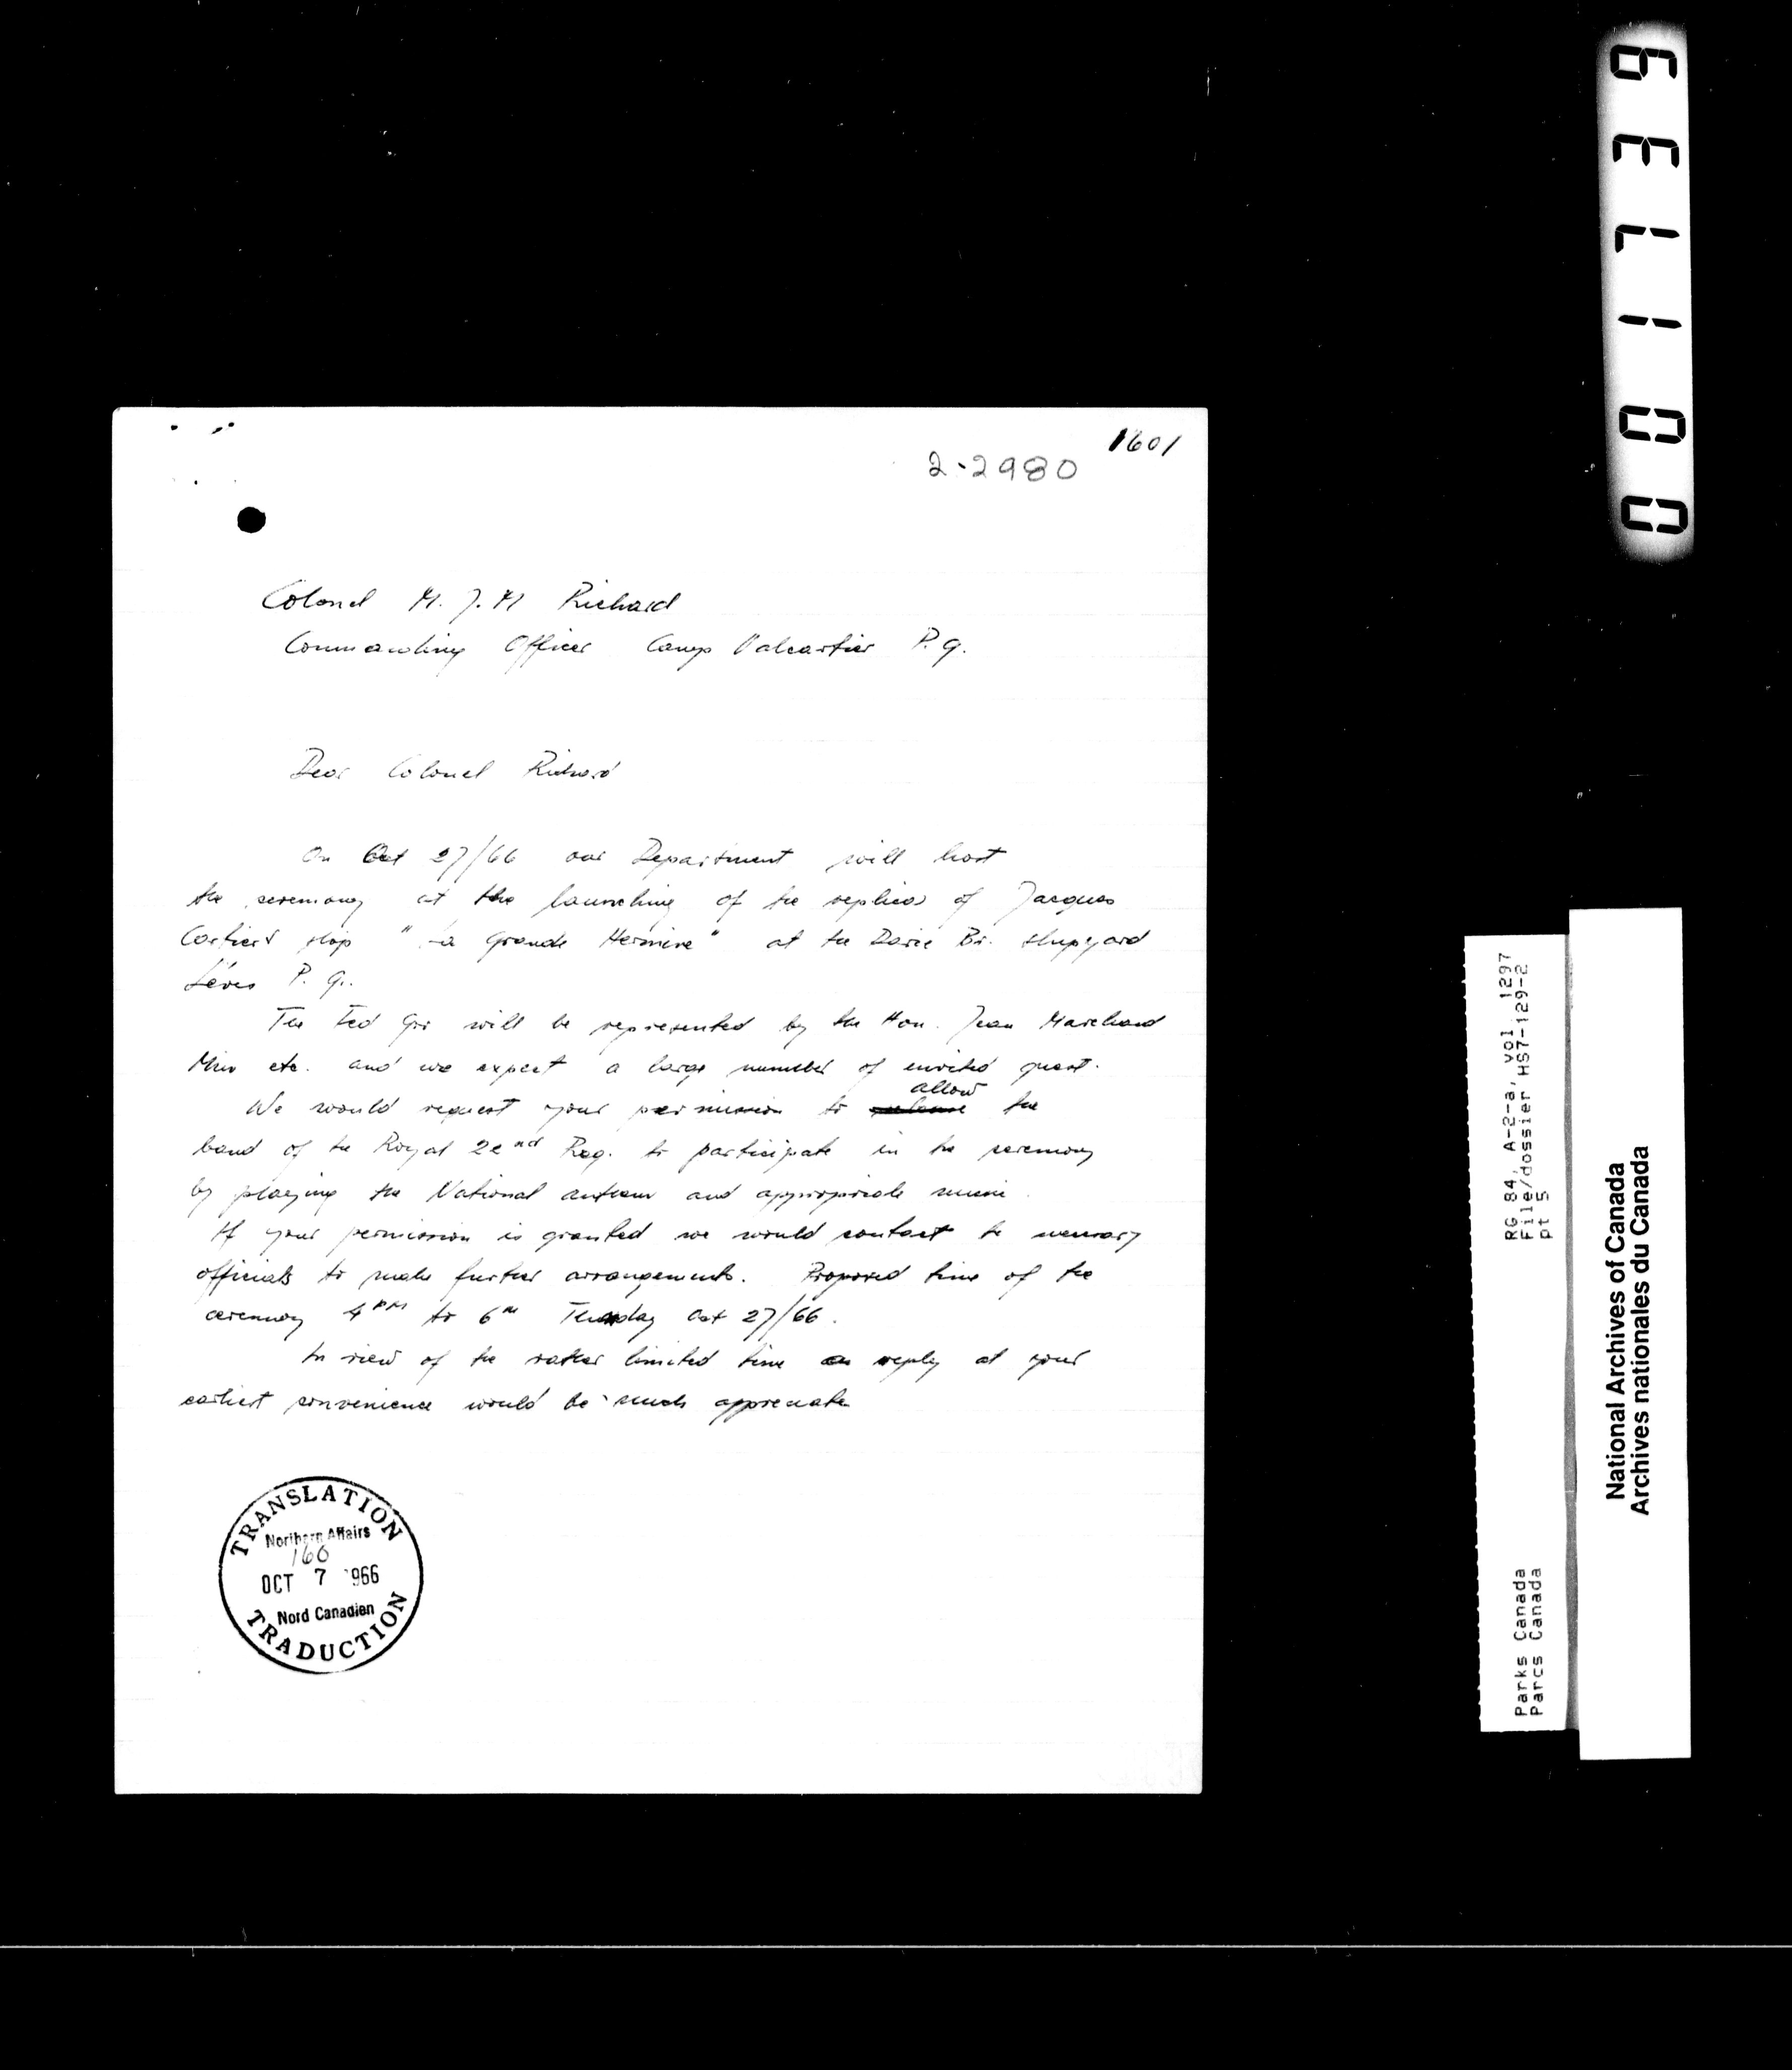 1601
2-2980
Colonel M. J. M Richard
Commanding Officer Camp Valcartier P.Q.
Dear Colonel Richard
On Oct 27/66 our Department will host
the ceremony at the launching of the replica of Jacques
Cartier's ship "La Grande Hermine" at the Davie Br. shipyard
Lévis P. Q.
The Fed Gov will be represented by the Hon. Jean Marchand
Min etc. and we expect a large number of invited guest.
We would request your permission to allow the
band of the Royal 22e nd Reg. to participate in the ceremony
by playing the National anthem and appropriate music.
If your permission is granted we would contact the necessary
officials to make further arrangements. Proposed time of the
ceremony 4 PM to 6 PM Thursday Oct 27/66.
In view of the rather limited time a reply at your
earliest convenience would be much appreciate
TRANSLATION
Northern Affairs
160
OCT 7 1966
Nord Canadien
TRADUCTION
001139
RG 84, A-2-a, vol. 1297
File/dossier HS7-129-2
pt 5
Parks Canada
Parcs Canada
National Archives of Canada
Archives nationales du Canada